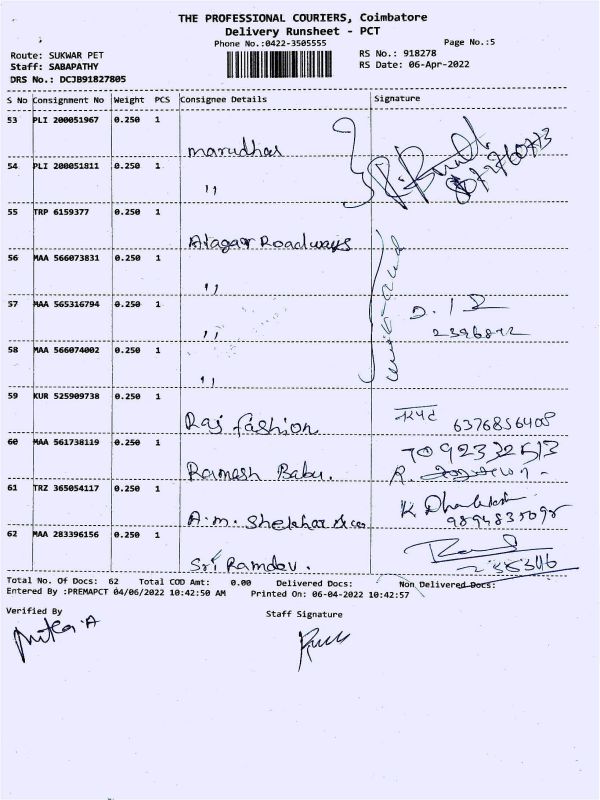 THE PROFESSIONAL COURIERS, Coimbatore
Delivery Runsheet - PCT
Phone No.:0422-3505555 Page No.:5
Route: SUKWAR PET RS No.: 918278
Staff: SABAPATHY RS Date: 06-Apr-2022
DRS No.: DCJB91827805
S No Consignment No Weight PCS Consignee Details Signature
53 PLI 200051967 0.250 1 marudhar
54 PLI 200051811 0.250 1 ,,
55 TRP 6159377 0.250 1 Alagar Roadways
56 MAA 566073831 0.250 1 ,,
57 MAA 565316794 0.250 1 ,,
58 MAA 566074002 0.250 1 ,,
59 KUR 525909738 0.250 1 Raj fashion 6376856408
60 MAA 561738119 0.250 1 Ramesh Babu. 7092332513
61 TRZ 365054117 0.250 1 A.m. Shekhar & co 9894835098
62 MAA 283396156 0.250 1 Sri Ramdev.
Total No. Of Docs: 62 Total COD Amt: 0.00 Delivered Docs: Non Delivered Docs:
Entered By :PREMAPCT 04/06/2022 10:42:50 AM Printed On: 06-04-2022 10:42:57
Verified By Staff Signature